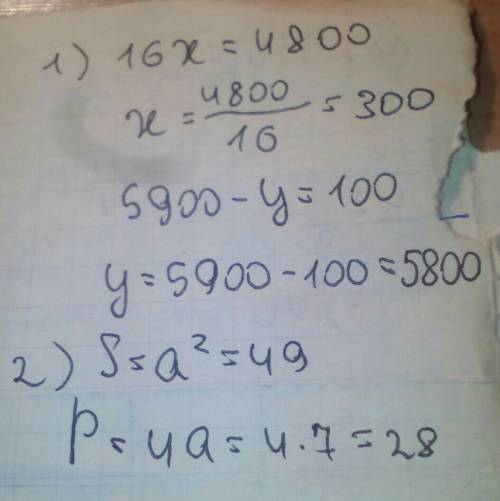 1) 16x = 4800
x = 4800/16 = 300
5900 - y = 100
y = 5900 - 100 = 5800
2) S = a² = 49
P = 4a = 4·7 = 28